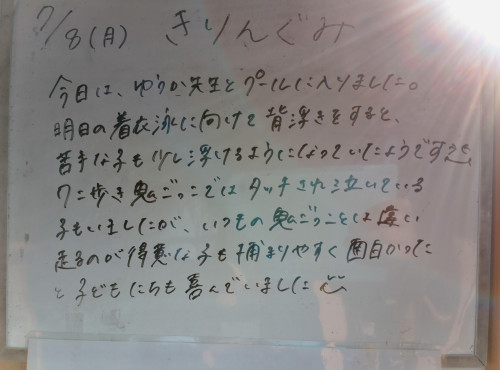 7/8(月) きりんぐみ
今日は、ゆうか先生とプールに入りました。
明日の着衣泳に向けて背浮きをすると、
苦手な子も少し浮けるようになっていたようです
ワニ歩き鬼ごっこではタッチされ泣いている
子もいましたが、いつもの鬼ごっことは違い
走るのが得意な子も捕まりやすく面白かった
と子どもたちも喜んでいました